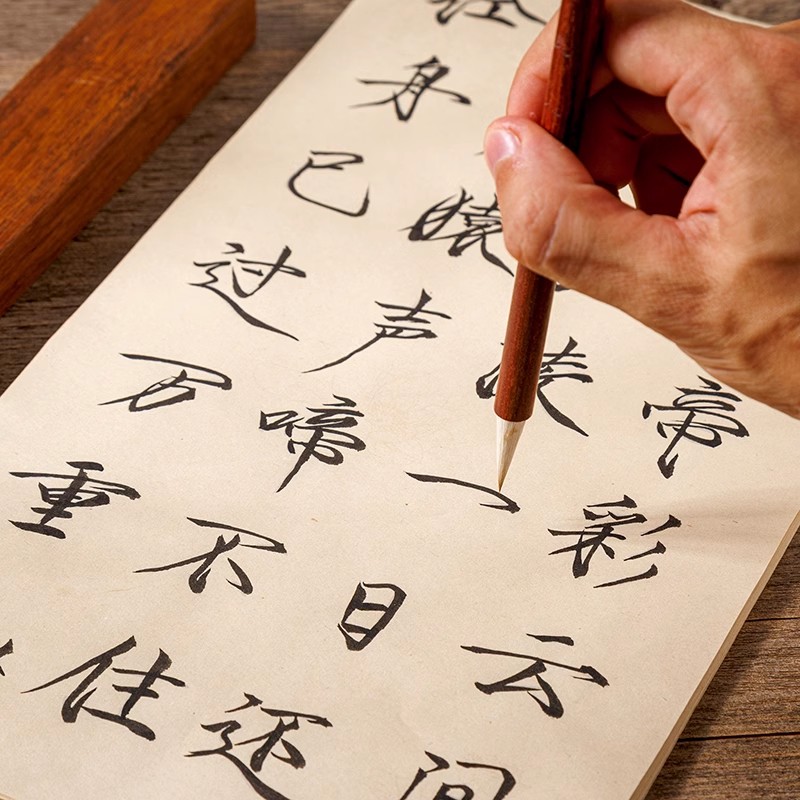 帝彩云间
陵一日还
猿声啼不住
轻舟已过万重